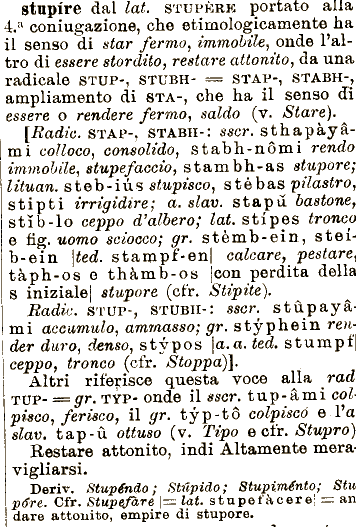 stupire dal lat. STUPĒRE portato alla
4.ª coniugazione, che etimologicamente ha
il senso di star fermo, immobile, onde l'al-
tro di essere stordito, restare attonito, da una
radicale STUP-, STUBH- = STAP-, STABH-,
ampliamento di STA-, che ha il senso di
essere o rendere fermo, saldo (v. Stare).
[Radic. STAP-, STABH-: sscr. sthapàyâ-
mi colloco, consolido, stabh-nômi rendo
immobile, stupefaccio, stambh-as stupore;
lituan. steb-iùs stupisco, stèbas pilastro,
stipti irrigidire; a. slav. stapŭ bastone,
stib-lo ceppo d'albero; lat. stípes tronco
e fig. uomo sciocco; gr. stèmb-ein, stei-
b-ein |ted. stampf-en| calcare, pestare,
tàph-os e thàmb-os |con perdita della
s iniziale| stupore (cfr. Stipite).
Radic. STUP-, STUBH-: sscr. stûpayâ-
mi accumulo, ammasso; gr. stýphein ren-
der duro, denso, stýpos |a. a. ted. stumpf|
ceppo, tronco (cfr. Stoppa)].
Altri riferisce questa voce alla rad
TUP- = gr. TYP- onde il sscr. tup-âmi col-
pisco, ferisco, il gr. týp-tô colpisco e l'a
slav. tap-û ottuso (v. Tipo e cfr. Stupro)
Restare attonito, indi Altamente mera-
vigliarsi.
Deriv. Stupèndo; Stúpido; Stupiménto; Stu
póre. Cfr. Stupefàre |= lat. stupefàcere| = an
dare attonito, empire di stupore.